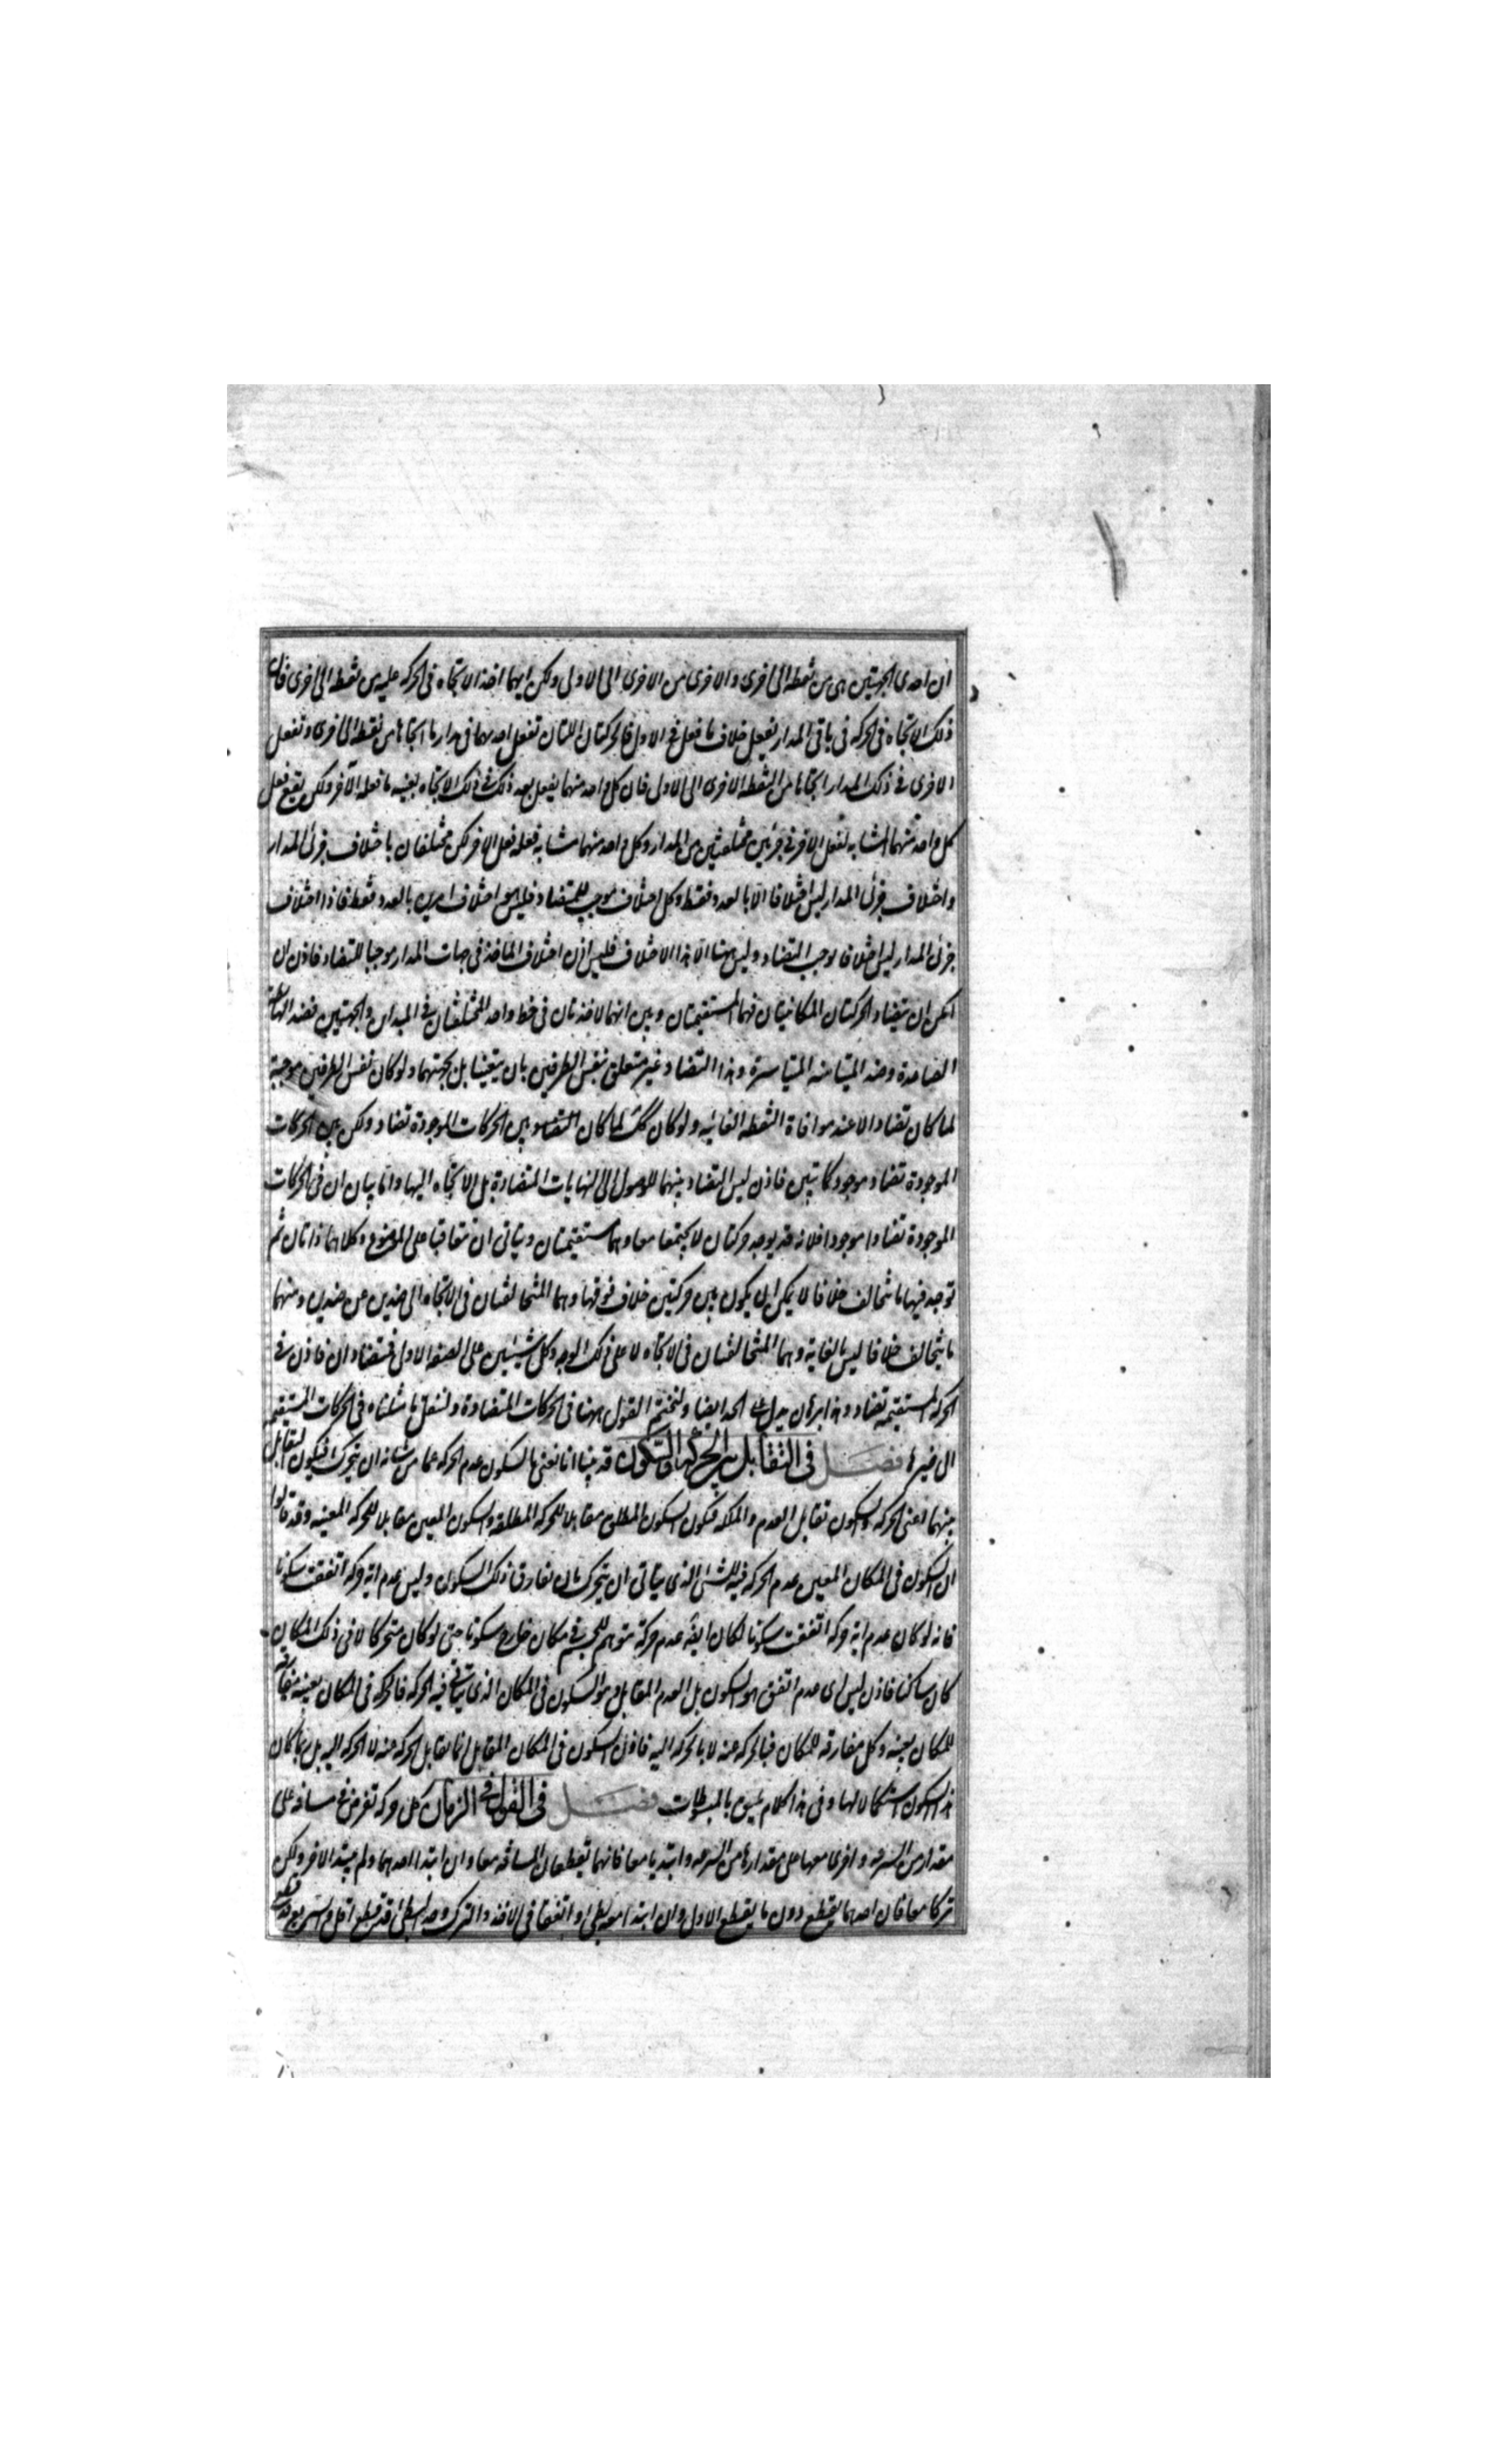 ان احدى الجهتين هى من نقطة الى اخرى والاخرى من الاخرى الى الاولى ولكن ايهما اخذ الاتجاه فى الحركة عليه من نقطة الى اخرى فان
ذلك الاتجاه فى الحركة فى باقى المدار يفعل خلاف ما فعل فى الاول فالحركتان اللتان تفعل احديهما فى مدار ما اتجاها من نقطة الى اخرى وتفعل
الاخرى فى ذلك المدار اتجاها من النقطة الاخرى الى الاولى فان كل واحد منهما يفعل بعد ذلك فى ذلك الاتجاه بعينه ما فعله الآخر ولكن يقع فعل
كل واحد منهما المشابه لفعل الآخر فى جزئين مختلفين من المدار وكل واحد منهما مشابه فعله فعل الآخر لكن مختلفان باختلاف جزئى المدار
واختلاف جزئى المدار ليس اختلافا الا بالعدد فقط وكل اختلاف موجب للتضاد فليس هو اختلاف امرين بالعدد فقط فاذا اختلاف
جزئى المدار ليس اختلافا يوجب التضاد وليس هنا الا هذا الاختلاف فليس اذن اختلاف المأخذ فى جهات المدار موجبا للتضاد فاذن ان
امكن ان يتضاد الحركتان المكانيتان فهما المستقيمتان وبين انهما الآخذتان فى خط واحد المختلفتان فى المبدأين والجهتين فضد الهابطة
الصاعدة وضد المتيامنه المتياسرة وهذا التضاد غير متعلق بنفس الطرفين بان يتعينا بل بجهتهما ولو كان نفس الطرفين موجبة
لما كان تضاد الا عند موافاة النقطة الغائيه ولو كان كك لما كان التضاد بين الحركات الموجودة تضاد ولكن بين الحركات
الموجودة تضاد موجود كما تبين فاذن ليس التضاد بينهما للوصول الى النهايات المتضادة بل الاتجاه اليها واما بيان ان فى الحركات
الموجودة تضادا موجودا فلانه قد يوجد حركتان لا يجتمعا معا وهما مستقيمتان ويتاتى ان يتعاقبا على الموضوع وكلاهما ذاتان ثم
توجد فيها ما تتخالف خلافا لا يمكن ان يكون بين حركتين خلاف فوقها وهما المتخالفتان فى الاتجاه الى ضدين عن ضدين ومنهما
ما تتخالف خلافا ليس بالغاية وهما المتخالفتان فى الاتجاه لا على ذلك الوجه وكل شيئين على الصفة الاولى فمتضادان فاذن فى
الحركة المستقيمة تضاد وهذا برهان يدل على الحد ايضا ولنختم القول ههنا فى الحركات المتضادة ولننقل ما قلناه فى الحركات المستقيمة
الى غيرها فصل فى التقابل بين الحركة والسكون قد بينا انا نعنى بالسكون عدم الحركة عما من شانه ان يتحرك فيكون التقابل
بينهما اعنى الحركة والسكون تقابل العدم والملكة فيكون السكون المطلق مقابلا للحركة المطلقة والسكون المعين مقابلا للحركة المعينة وقد قالوا
ان السكون فى المكان المعين عدم الحركة فيه للشئ الذى يتاتى ان يتحرك بان يفارق ذلك السكون وليس عدم اية حركة اتفقت سكونا
فانه لو كان عدم اية حركة اتفقت سكونا لكان ايضا عدم حركة متوهم للجسم فى مكان خارج سكونا حتى لو كان متحركا لا فى ذلك المكان
كان ساكنا فاذن ليس اى عدم اتفق هو السكون بل العدم المقابل وهو السكون فى المكان الذى يتاتى فيه الحركة فالحركة فى المكان بعينه مفارقة
للمكان بعينه وكل مفارقه للمكان فبالحركة عنه لا بالحركة اليه فاذن السكون فى المكان المقابل انما يقابل الحركة عنه لا الحركة اليه بل ربما كان
هذا السكون استكمالا لها وفى هذا كلام يليق بالمبسوطات فصل فى القول فى الزمان كل حركة تفرض فى مسافة على
مقدار من السرعة واخرى معها على مقدارها من السرعة وابتديا معا فانهما تقطعان المسافة معا وان ابتدأ احدهما ولم يبتد الآخر ولكن
تركا معا فان احدهما يقطع دون ما يقطع الاول وان ابتدأ معه بطئ واتفقا فى الاخذ والترك وجد البطئ قد قطع اقل والسريع قد قطع